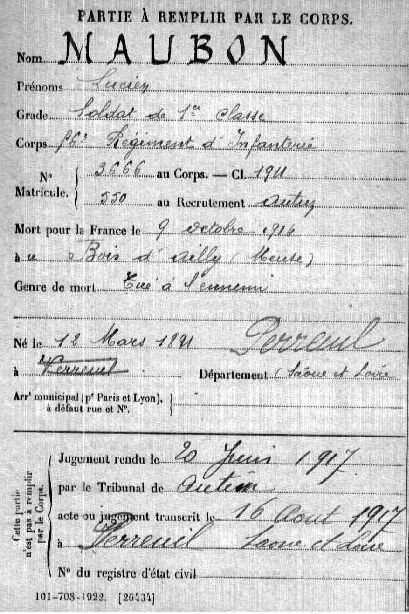 PARTIE À REMPLIR PAR LE CORPS.
Nom MAUBON
Prénoms Lucien
Grade Soldat de 1re classe
Corps 56e Régiment d'Infanterie
N° 3666 au Corps. — Cl. 1911
Matricule. 550 au Recrutement Autun
Mort pour la France le 9 octobre 1914
à u Bois d'Ailly (Meuse)
Genre de mort Tué à l'ennemi
Né le 12 Mars 1891 Perreuil
à Verreuil Département (Saône et Loire
Arrt municipal (pr Paris et Lyon), à défaut rue et N°.
Cette partie n'est pas à remplir par le Corps.
Jugement rendu le 20 Juin 1917
par le Tribunal de Autun
acte ou jugement transcrit le 16 Aout 1917
à Perreuil Saone et Loire
N° du registre d'état civil
101-708-1922. [26434]